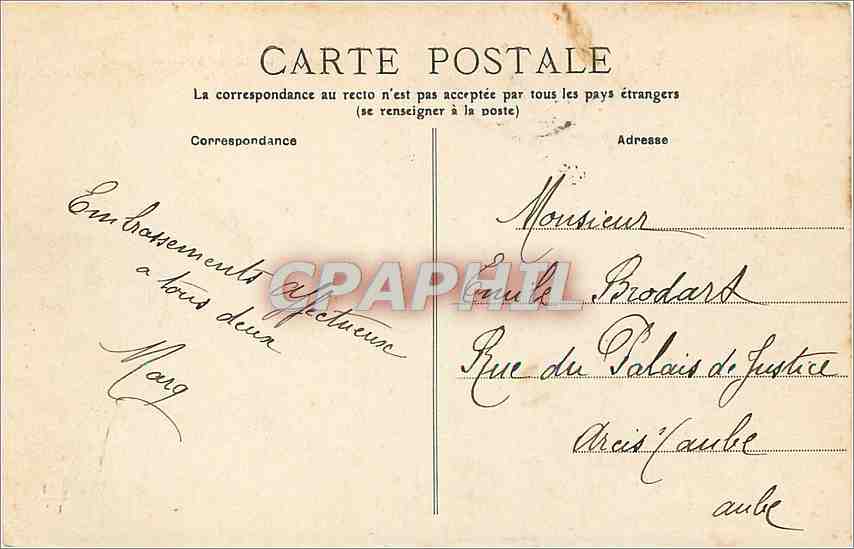 CARTE POSTALE
La correspondance au recto n'est pas acceptée par tous les pays étrangers
(se renseigner à la poste)
Correspondance
Adresse
Embrassements affectueux
a tous deux
Marg
CPAPHIL
Monsieur
Emile Brodart
Rue du Palais de Justice
Arcis s/ aube
aube